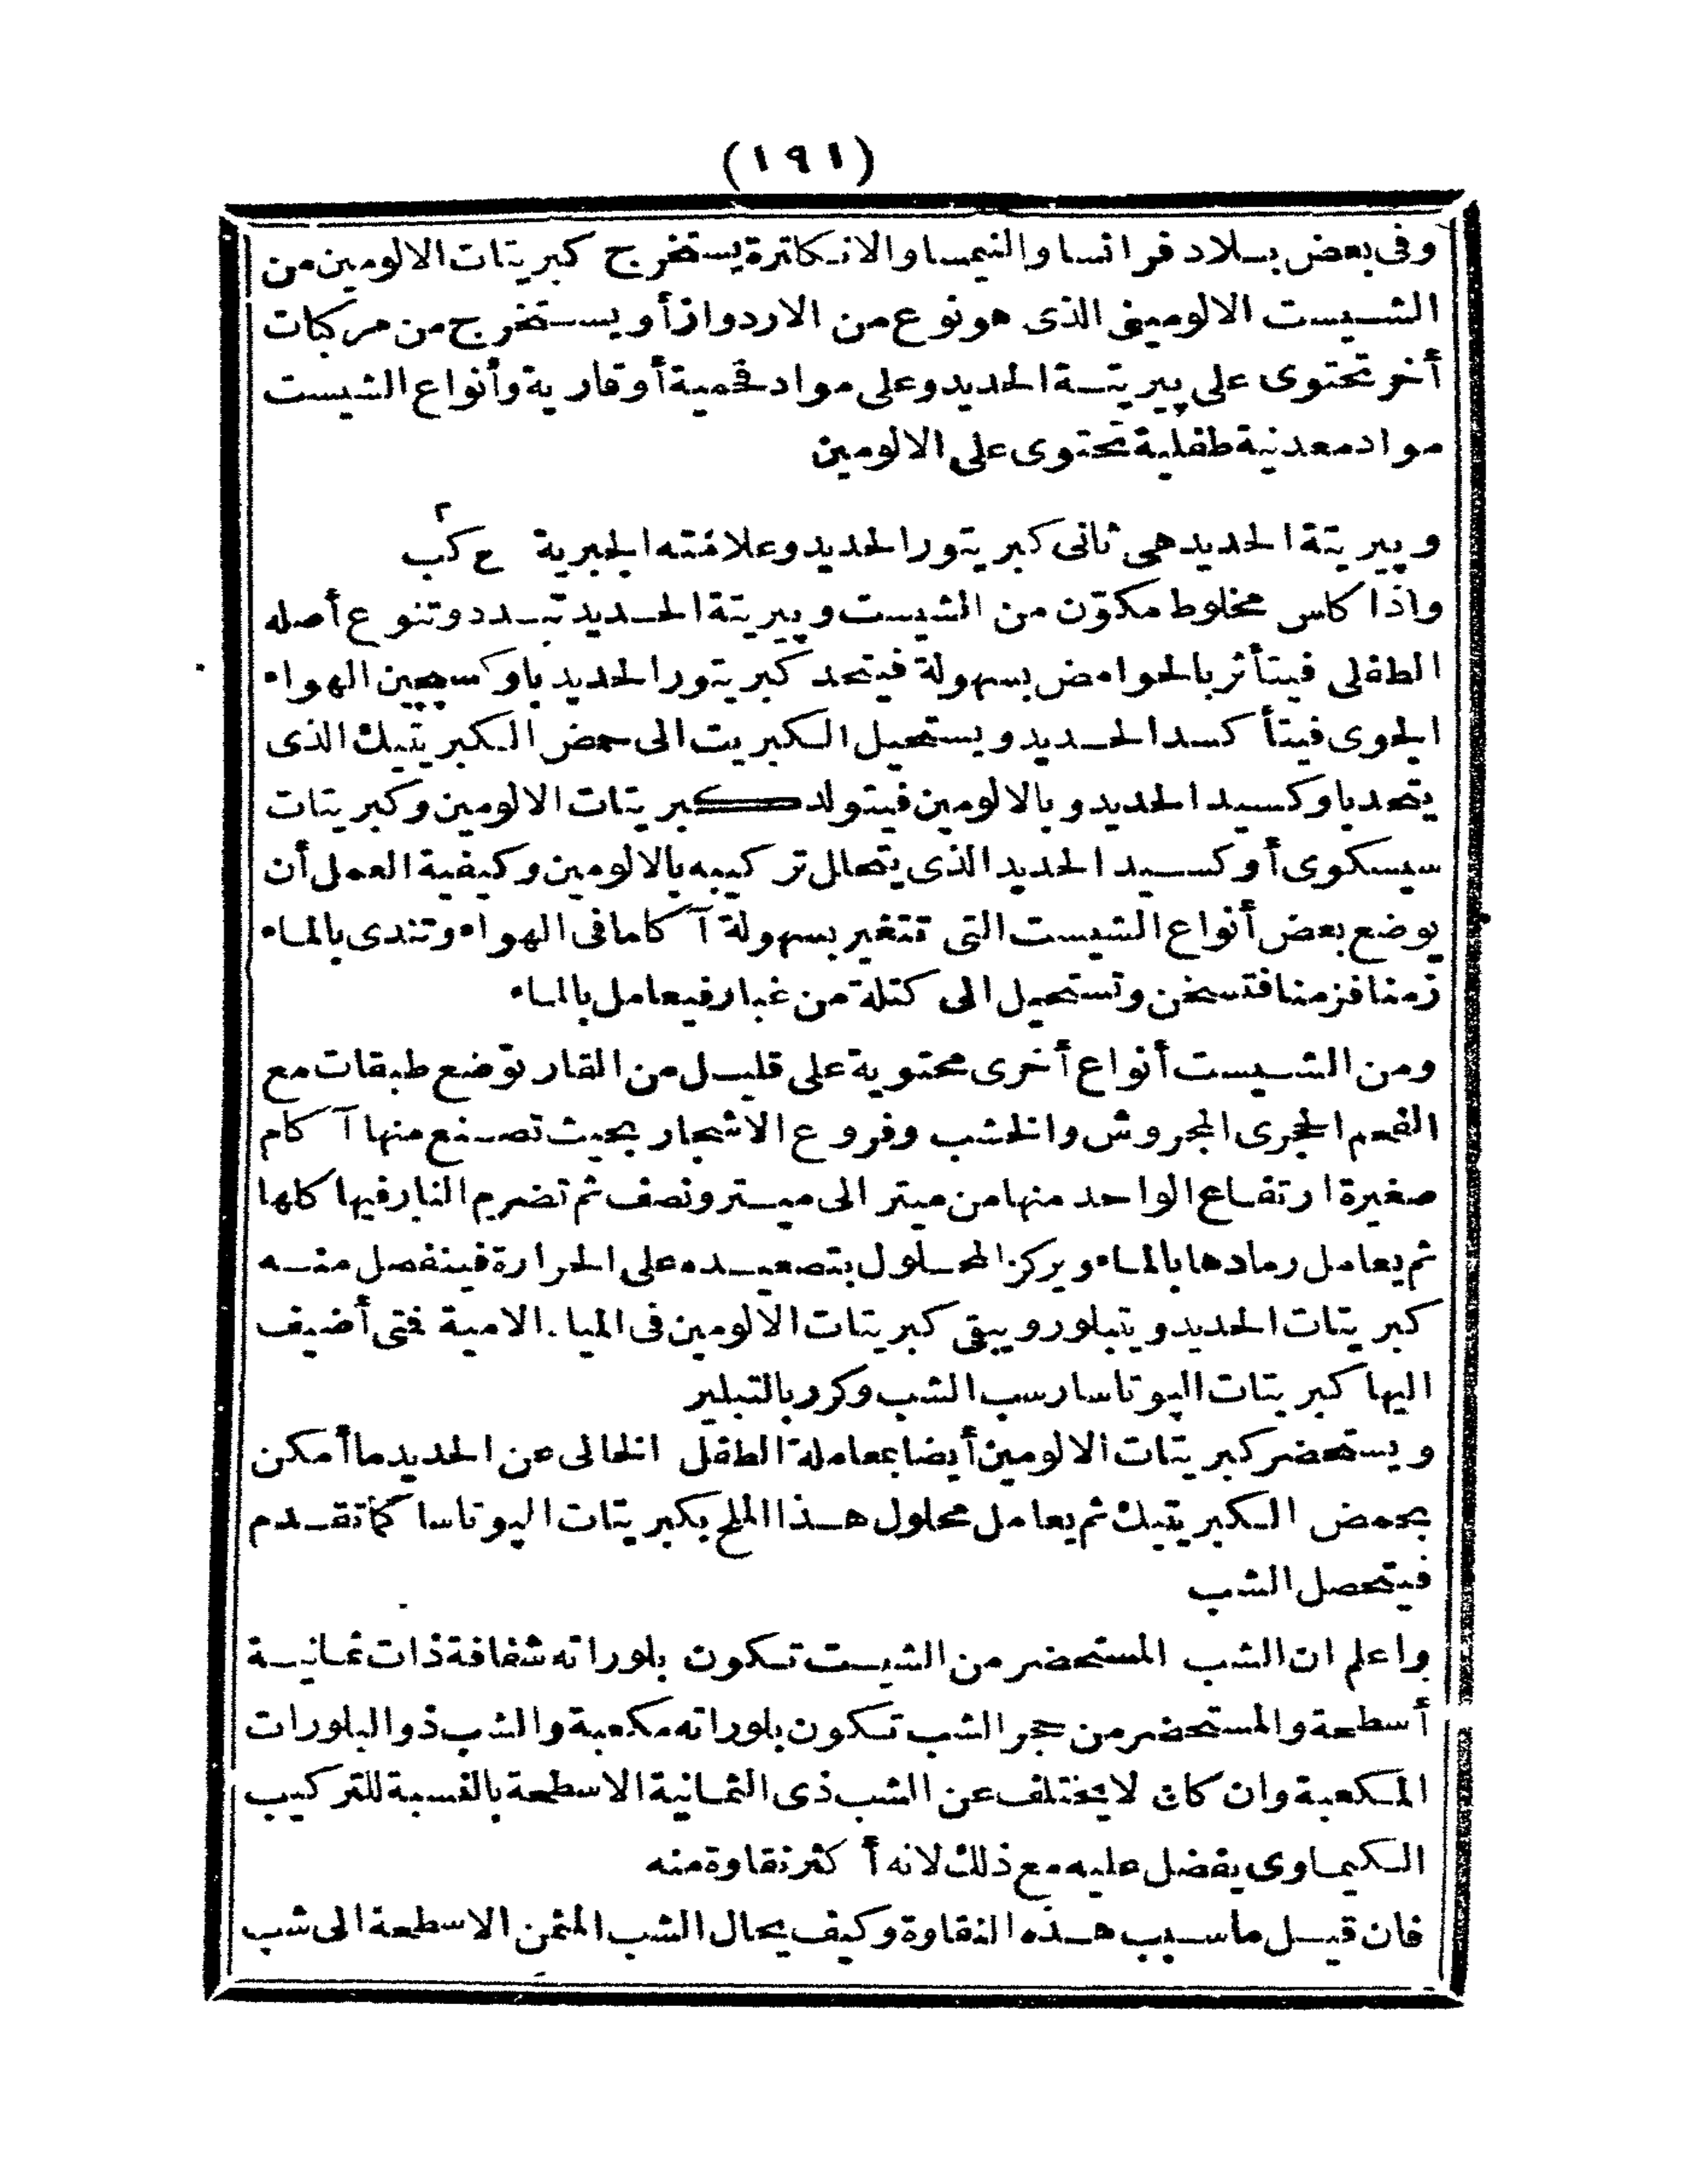 (١٩١)
وفى بعض بلاد فرانسا والنيمسا والانكاترة يستخرج كبريتات الالومين من
الشيست الالوميني الذى هو نوع من الاردواز أو يستخرج من مركبات
أخر تحتوى على پيريتة الحديد وعلى مواد فحمية أو قارية وأنواع الشيست
مواد معدنية طفلية تحتوى على الالومين
وپيريتة الحديد هى ثانى كبريتور الحديد وعلامته الجبرية ح كب٢
واذا كاس مخلوط مكوّن من الشيست وپيريتة الحديد تبدد وتنوع أصله
الطفلى فيتأثر بالحوامض بسهولة فيتحد كبريتور الحديد باوكسيچين الهواء
الجوى فيتأكسد الحديد ويستحيل الكبريت الى حمض الكبريتيك الذى
يتحد باوكسيد الحديد وبالالومين فيتولد كبريتات الالومين وكبريتات
سيسكوى أوكسيد الحديد الذى يتحلل تركيبه بالالومين وكيفية العمل أن
يوضع بعض أنواع الشيست التى تتغير بسهولة آكاما فى الهواء وتندى بالماء
زمنا فزمنا فتسخن وتستحيل الى كتلة من غبار فيعامل بالماء
ومن الشيست أنواع أخرى محتوية على قليل من القار توضع طبقات مع
الفحم الحجرى المجروش والخشب وفروع الاشجار بحيث تصنع منها آكام
صغيرة ارتفاع الواحد منها من ميتر الى ميتر ونصف ثم تضرم النار فيها كلها
ثم يعامل رمادها بالماء ويركز المحلول بتصعيده على الحرارة فينفصل منه
كبريتات الحديد ويتبلور ويبقى كبريتات الالومين فى المياه الامية فتى أضيف
اليها كبريتات الپوتاسا رسب الشب وكرر بالتبلير
ويستحضر كبريتات الالومين أيضا بمعاملة الطفل الخالى عن الحديد ما أمكن
بحمض الكبريتيك ثم يعامل محلول هذا الملح بكبريتات الپوتاسا كما تقدم
فيتحصل الشب
واعلم ان الشب المستحضر من الشيست تكون بلوراته شفافة ذات ثمانية
أسطحة والمستحضر من حجر الشب تكون بلوراته مكعبة والشب ذو البلورات
المكعبة وان كان لا يختلف عن الشب ذى الثمانية الاسطحة بالنسبة للتركيب
الكيماوى يفضل عليه مع ذلك لانه أكثر نقاوة منه
فان قيل ما سبب هذه النقاوة وكيف يحال الشب المثمن الاسطحة الى شب